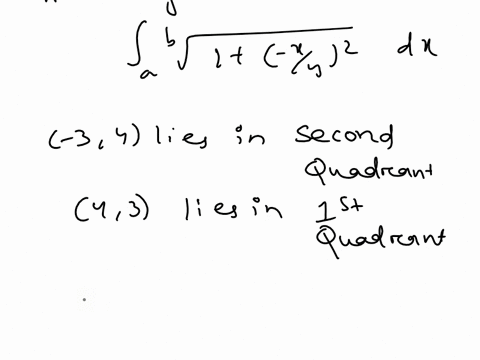 ∫ₐᵇ √(1 + (-x/y)²) dx
(-3, 4) lies in second
Quadrant
(4, 3) lies in 1st
Quadrant